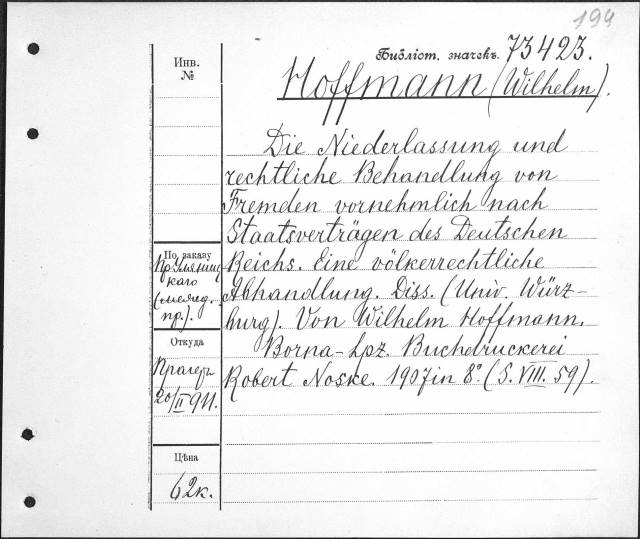 194
Библіот. значекъ. 73423.
Hoffmann (Wilhelm).
Инв.
№
Die Niederlassung und
rechtliche Behandlung von
Fremden vornehmlich nach
Staatsverträgen des Deutschen
Reichs. Eine völkerrechtliche
Abhandlung. Diss. (Univ. Würz-
burg). Von Wilhelm Hoffmann.
Borna-Lpz. Buchdruckerei
Robert Noske. 1907 in 8° (S. VIII. 59).
По заказу
каго
пр.).
Откуда
Прагеръ
20/II 911.
Цѣна
62к.